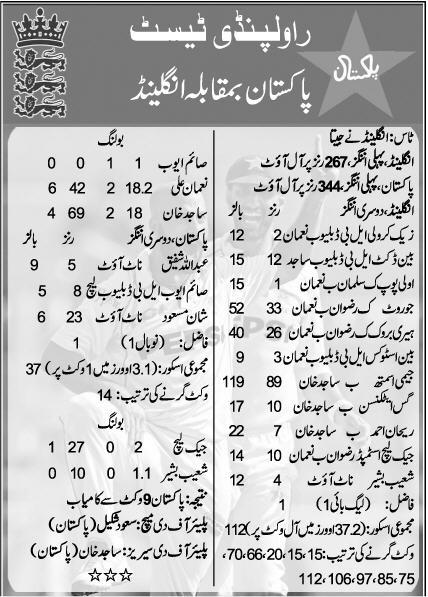 راولپنڈی ٹیسٹ
پاکستان
پاکستان بمقابلہ انگلینڈ
ٹاس: انگلینڈ نے جیتا
انگلینڈ، پہلی اننگز، 267 رنز پر آل آؤٹ
پاکستان، پہلی اننگز، 344 رنز پر آل آؤٹ
انگلینڈ، دوسری اننگز رنز بالز
زیک کرولی ایل بی ڈبلیو ب نعمان 2 12
بین ڈکٹ ایل بی ڈبلیو ب ساجد 12 15
اولی پوپ ک سلمان ب نعمان 1 15
جو روٹ ک رضوان ب نعمان 33 52
ہیری بروک ک رضوان ب نعمان 26 40
بین اسٹوکس ایل بی ڈبلیو ب نعمان 3 9
جیمی اسمتھ ب ساجد خان 89 119
گس ایٹکنسن ب ساجد خان 10 17
ریحان احمد ب ساجد خان 7 22
جیک لیچ اسٹمپڈ رضوان ب نعمان 10 14
شعیب بشیر ناٹ آؤٹ 4 12
فاضل: (لیگ بائی 1) 1
مجموعی اسکور: (37.2 اوورز میں آل وکٹ پر) 112
وکٹ گرنے کی ترتیب: 15، 15، 20، 66، 70،
75، 85، 97، 106، 112
بولنگ
صائم ایوب 1 1 0 0
نعمان علی 18.2 2 42 6
ساجد خان 18 2 69 4
پاکستان، دوسری اننگز رنز بالز
عبداللہ شفیق ناٹ آؤٹ 5 9
صائم ایوب ایل بی ڈبلیو ب لیچ 8 5
شان مسعود ناٹ آؤٹ 23 6
فاضل: (نوبال 1) 1
مجموعی اسکور: (3.1 اوورز میں 1 وکٹ پر) 37
وکٹ گرنے کی ترتیب: 14
بولنگ
جیک لیچ 2 0 27 1
شعیب بشیر 1.1 0 10 0
نتیجہ: پاکستان 9 وکٹ سے کامیاب
پلیئر آف دی میچ: سعود شکیل (پاکستان)
پلیئر آف دی سیریز: ساجد خان (پاکستان)
☆☆☆